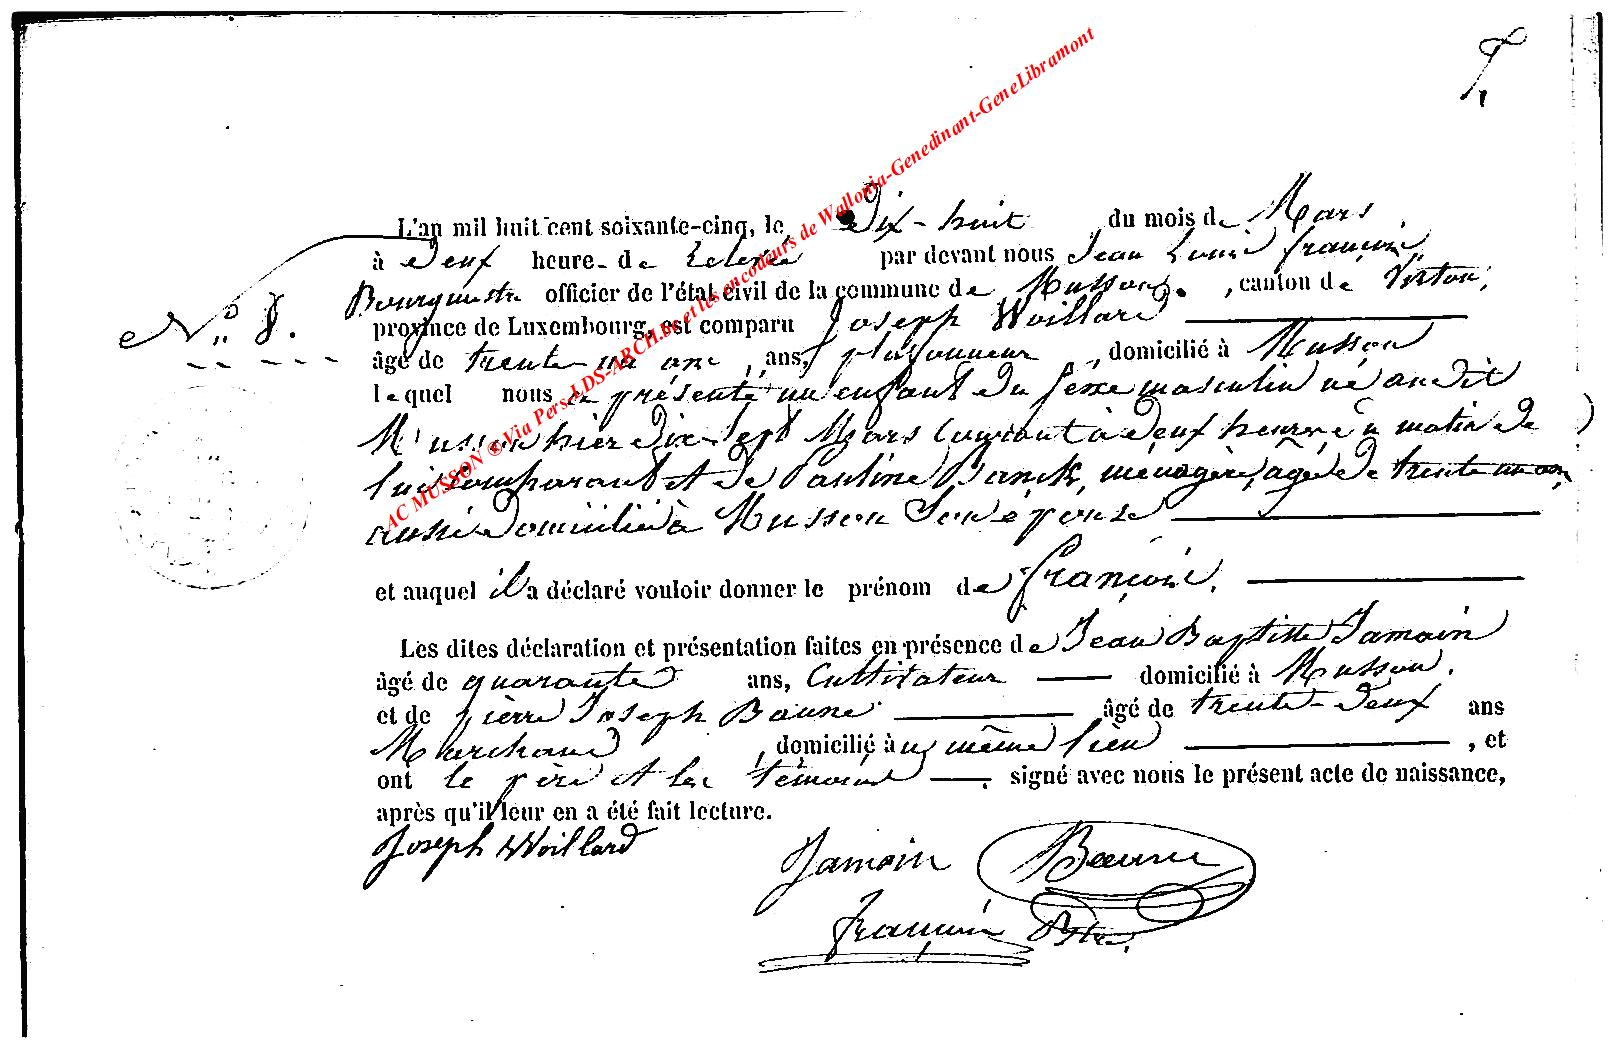 L'an mil huit cent soixante-cinq, le Dix-huit du mois de Mars
à deux heure- de relevée par devant nous Jean Louis françois
Bourgmestre officier de l'état civil de la commune de Musson, canton de Virton,
N° 8. province de Luxembourg, est comparu Joseph Woillard
âgé de trente-un ans, ans, plafonneur, domicilié à Musson
lequel nous a présenté un enfant du sexe masculin né audit
Musson hier dix-sept Mars courant à deux heures du matin de
lui comparant et de Pauline Banck, ménagère, âgée de trente un ans,
aussi domiciliée à Musson Son épouse
et auquel il a déclaré vouloir donner le prénom de françois.
Les dites déclaration et présentation faites en présence de Jean Baptiste Jamoin
âgé de quarante ans, Cultivateur domicilié à Musson.
et de pierre Joseph Baune âgé de trente-deux ans
Marchand, domicilié à même lieu, et
ont le père et les témoins signé avec nous le présent acte de naissance,
après qu'il leur en a été fait lecture.
Joseph Woillard
Jamoin Baune
françois Bstre.
AC MUSSON ® Via Pers-LDS-ARCH.be et les encodeurs de Wallonia-Genedinant-GeneLibramont